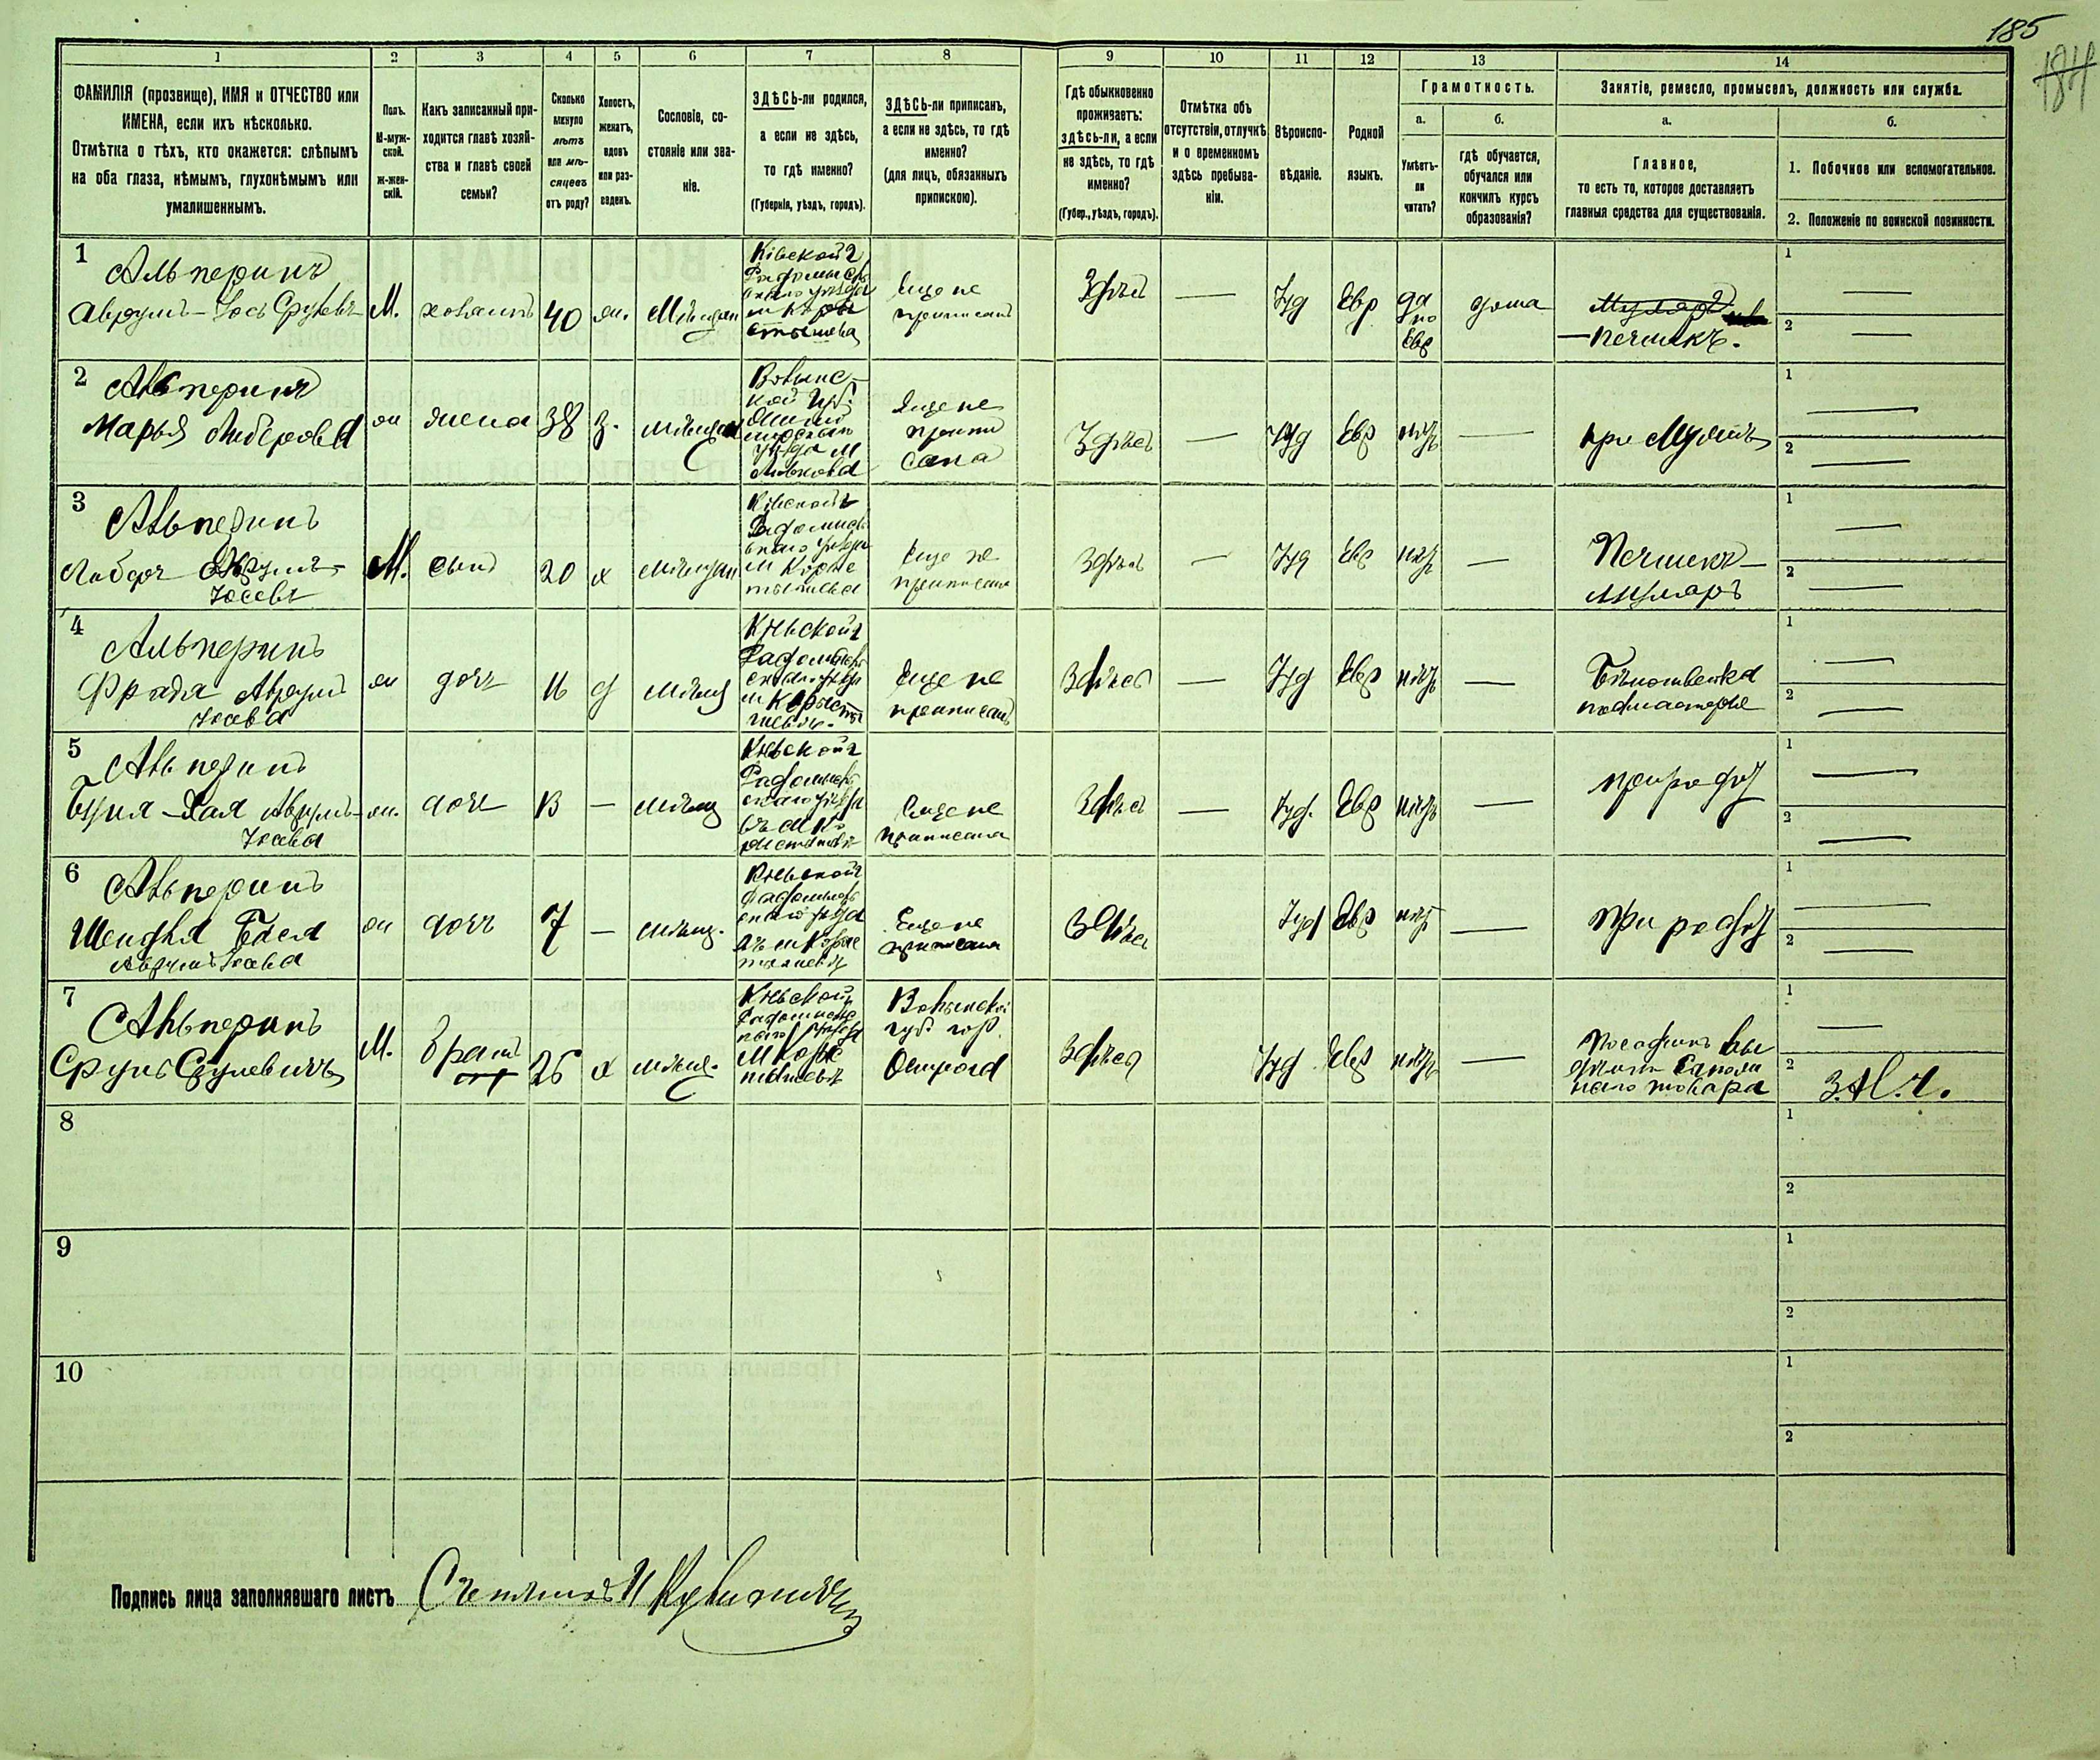 185
184
1
2
3
4
5
6
7
8
9
10
11
12
13
14
ФАМИЛІЯ (прозвище), ИМЯ и ОТЧЕСТВО или
ИМЕНА, если ихъ нѣсколько.
Отмѣтка о тѣхъ, кто окажется: слѣпымъ
на оба глаза, нѣмымъ, глухонѣмымъ или
умалишеннымъ.
Полъ.
М-муж-
ской.
Ж-жен-
скій.
Какъ записанный при-
ходится главѣ хозяй-
ства и главѣ своей
семьи?
Сколько
минуло
лѣтъ
или мѣ-
сяцевъ
отъ роду?
Холостъ,
женатъ,
вдовъ
или раз-
веденъ.
Сословіе, со-
стояніе или зва-
ніе.
ЗДѢСЬ-ли родился,
а если не здѣсь,
то гдѣ именно?
(Губернія, уѣздъ, городъ).
ЗДѢСЬ-ли приписанъ,
а если не здѣсь, то гдѣ
именно?
(для лицъ, обязанныхъ
припискою).
Гдѣ обыкновенно
проживаетъ:
здѣсь-ли, а если
не здѣсь, то гдѣ
именно?
(Губер., уѣздъ, городъ).
Отмѣтка объ
отсутствіи, отлучкѣ
и о временномъ
здѣсь пребыва-
ніи.
Вѣроиспо-
вѣданіе.
Родной
языкъ.
Грамотность.
а.
Умѣетъ-
ли
читать?
б.
гдѣ обучается,
обучался или
кончилъ курсъ
образованія?
Занятіе, ремесло, промыселъ, должность или служба.
а.
Главное,
то есть то, которое доставляетъ
главныя средства для существованія.
б.
1. Побочное или вспомогательное.
2. Положеніе по воинской повинности.
1
Альперинъ
Аврумъ-Іось Срулевъ
М.
хозяинъ
40
ж.
Мѣщан
Кіевской г
Радомысль
скаго уѣзда
м Коро
стышева
Еще не
приписанъ
Здѣсь
—
Іуд
Евр
да
по
Евр
дома
—Печникъ.
1 —
2 —
2
Альперинъ
Марья Лейберовна
ж
жена
38
з.
мѣщан
Волынс-
кой губ.
уѣзда м
Еще не
припи
сана
Здѣсь
—
Іуд
Евр
нѣтъ
—
при мужѣ
1 —
2 —
3
Альперинъ
Аврумъ-
Іосевъ
М.
сынъ
20
х
мѣщан
Кіевской г
Радомысль
скаго уѣзда
м Корос
тышева
Еще не
приписанъ
Здѣсь
—
Іуд
Евр
нѣтъ
—
Печникъ-
муляръ
1 —
2 —
4
Альперинъ
Фрада Аврумъ
Іосева
ж
дочь
16
д
мѣщ
Кіевской г
Радомысль
скаго уѣзда
м Коросты
шевѣ.
Еще не
приписана
Здѣсь
—
Іуд
Евр
нѣтъ
—
Бѣлошвейка
подмастерье
1 —
2 —
5
Альперинъ
Буня-Хая Аврумъ-
Іосева
ж.
дочь
13
—
мѣщ
Кіевской г
Радомысль
скаго уѣзда
въ м Ко
ростышевѣ
Еще не
приписана
Здѣсь
—
Іуд.
Евр
нѣтъ
—
при родит
1 —
2 —
6
Альперинъ
Шендля Бася
Аврумъ Іосева
ж
дочь
7
—
мѣщ.
Кіевской г
Радомысль
скаго уѣзда
въ м Корос
тышевѣ
Еще не
приписана
Здѣсь
Іуд
Евр
нѣтъ
—
при родит
1 —
2 —
7
Альперинъ
Сруль Срулевичъ
М.
братъ
26
х
мѣщ.
Кіевской г
Радомысль
скаго уѣзда
м Корос
тышевѣ
Волынской
губ. гор.
Острога
Здѣсь
Іуд
Евр
нѣтъ
—
товара
1 —
2
8
1
2
9
1
2
10
1
2
Подпись лица заполнявшаго листъ Счетчикъ